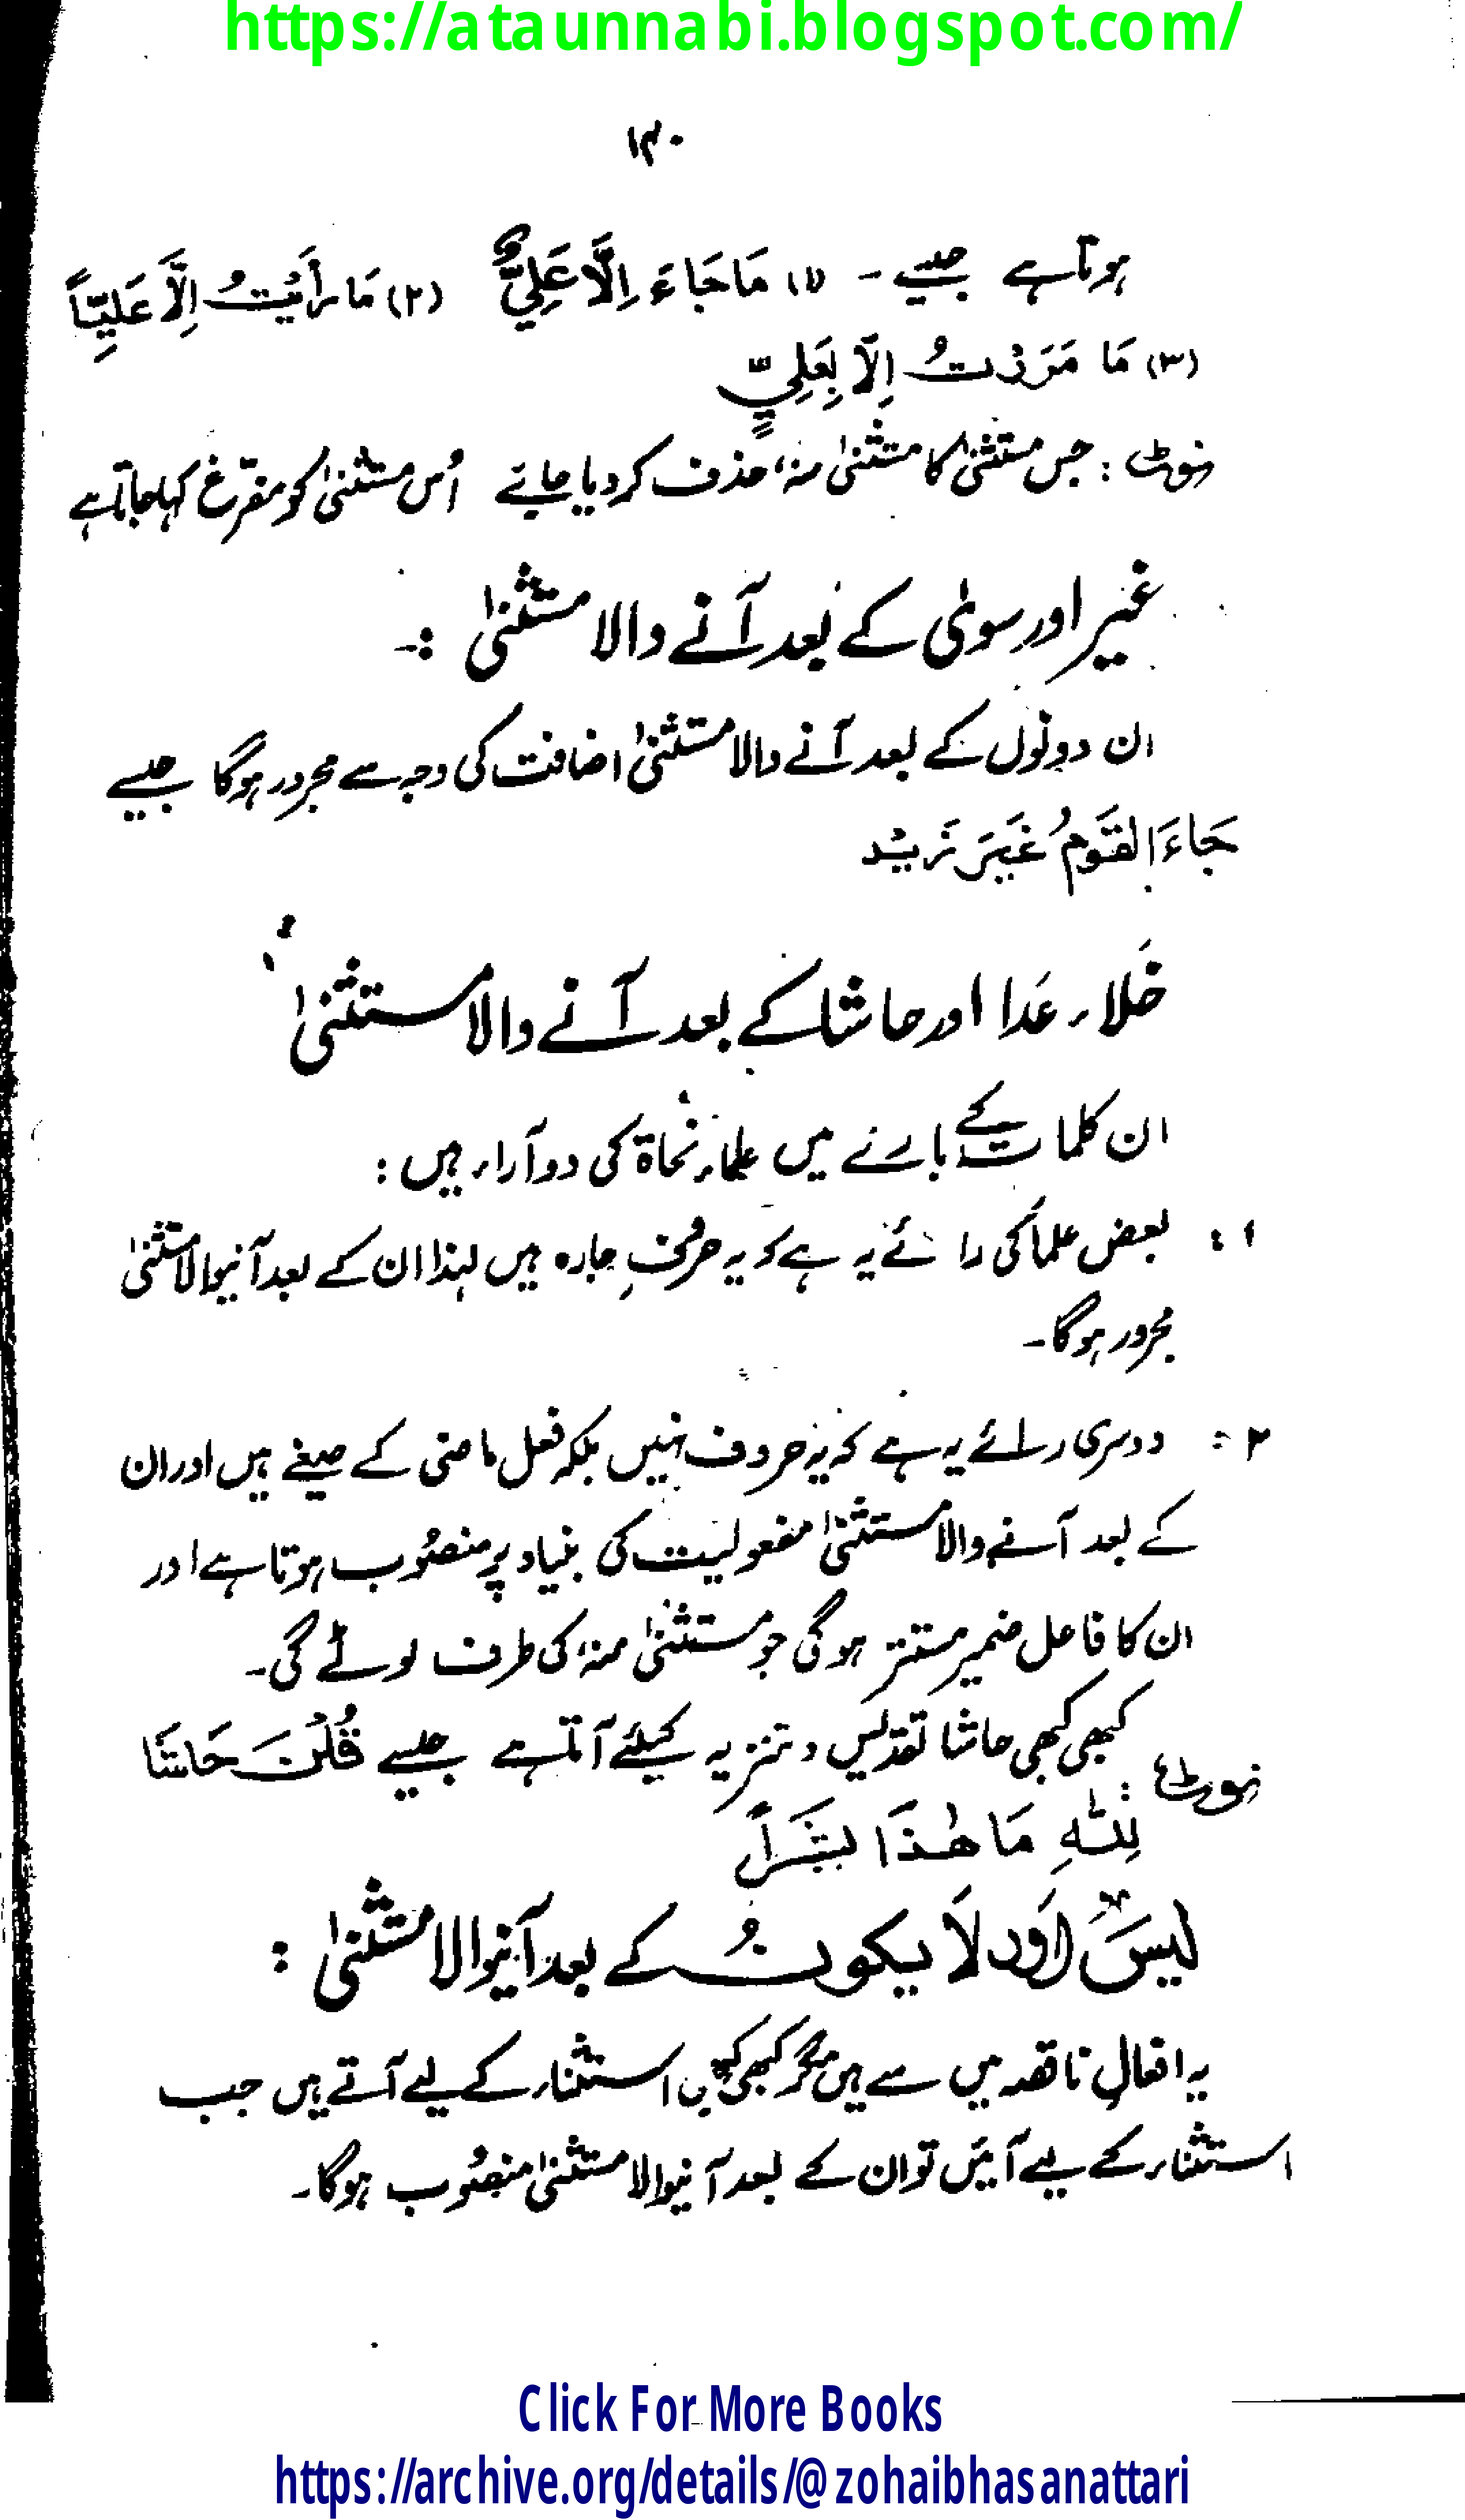 https://ataunnabi.blogspot.com/
۱۳۰
ہوتا ہے جیسے ۔ (۱) مَا جَاءَ اِلَّا عَلِيٌّ (۲) مَا رَأَيْتُ اِلَّا عَلِيًّا
(۳) مَا مَرَرْتُ اِلَّا بِعَلِيٍّ
نوٹ : جس مستثنیٰ کا مستثنیٰ منہ، حذف کر دیا جائے اُس مستثنیٰ کو مفرغ کہا جاتا ہے
غیر اور سویٰ کے بعد آنے والا مستثنیٰ :۔
ان دونوں کے بعد آنے والا مستثنیٰ اضافت کی وجہ سے مجرور ہوگا جیسے
جَاءَ الْقَوْمُ غَيْرَ زَيْد
خَلا ، عَدا اور حاشا کے بعد آنے والا مستثنیٰ :
ان کلمات کے بارے میں علماء نُحاۃ کی دو آراء ہیں :
۱ : بعض علما کی رائے یہ ہے کہ یہ حرفِ جارہ ہیں لہذا ان کے بعد آنیوالا مستثنیٰ
مجرور ہوگا۔
۲ : دوسری رائے یہ ہے کہ یہ حروف نہیں بلکہ فعل ماضی کے صیغے ہیں اور ان
کے بعد آنے والا مستثنیٰ مفعولیت کی بنیاد پر منصُوب ہوتا ہے اور
ان کا فاعل ضمیر مستتر ہوگی جو مستثنیٰ منہ، کی طرف لوٹے گی۔
نوٹ : کبھی کبھی حاشا تقدیس و تنزیہ کیلئے آتا ہے جیسے قُلْنَ حَاشَا
لِلّٰهِ مَا هٰذَا بَشَرًا
لَیسَ اَور لَا یکونُ کے بعد آنیوالا مستثنیٰ :
یہ افعالِ ناقصہ میں سے ہیں مگر کبھی کبھی استثناء کے لیے آتے ہیں جب
استثناء کے لیے آئیں تو ان کے بعد آنیوالا مستثنیٰ منصُوب ہوگا۔
Click For More Books
https://archive.org/details/@zohaibhasanattari